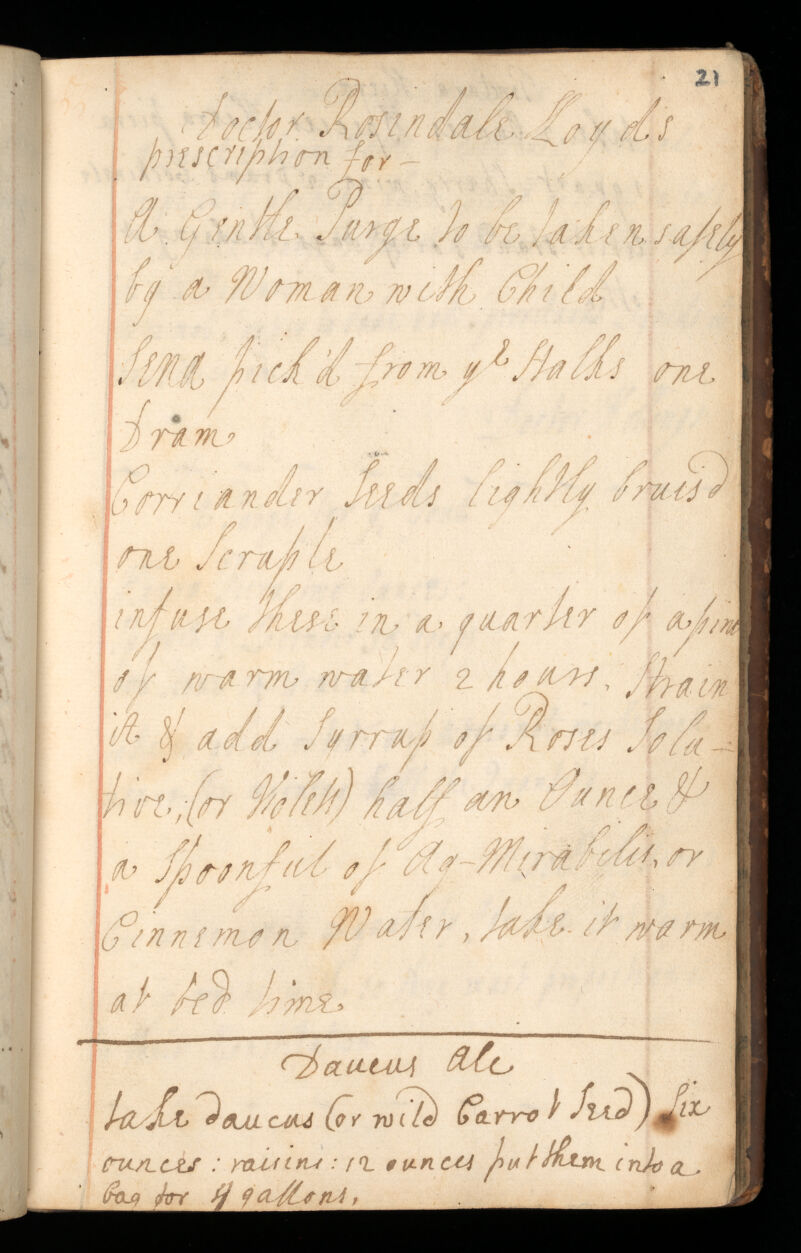 21
Doctor Rosindale Loyds
prescription for-
A Gentle Purge to be taken safely
by a Woman with Child
Sena pick'd from ye Stalks one
Dram
Corriander Seeds lightly bruis'd
one Scruple
infuse these in a quarter of a pint
of warm water 2 hours. Strain
it & add Syrrup of Roses Solu-
tive, (or Violets) half an Ounce &
a Spoonful of Aq-Mirabilis, or
Cinnemon Water, take it warm
at bed time
Daucus Ale
take daucus (or wild Carrot Seed) Six
ounces : raisins : 12 ounces put them into a
bag for 4 gallons.